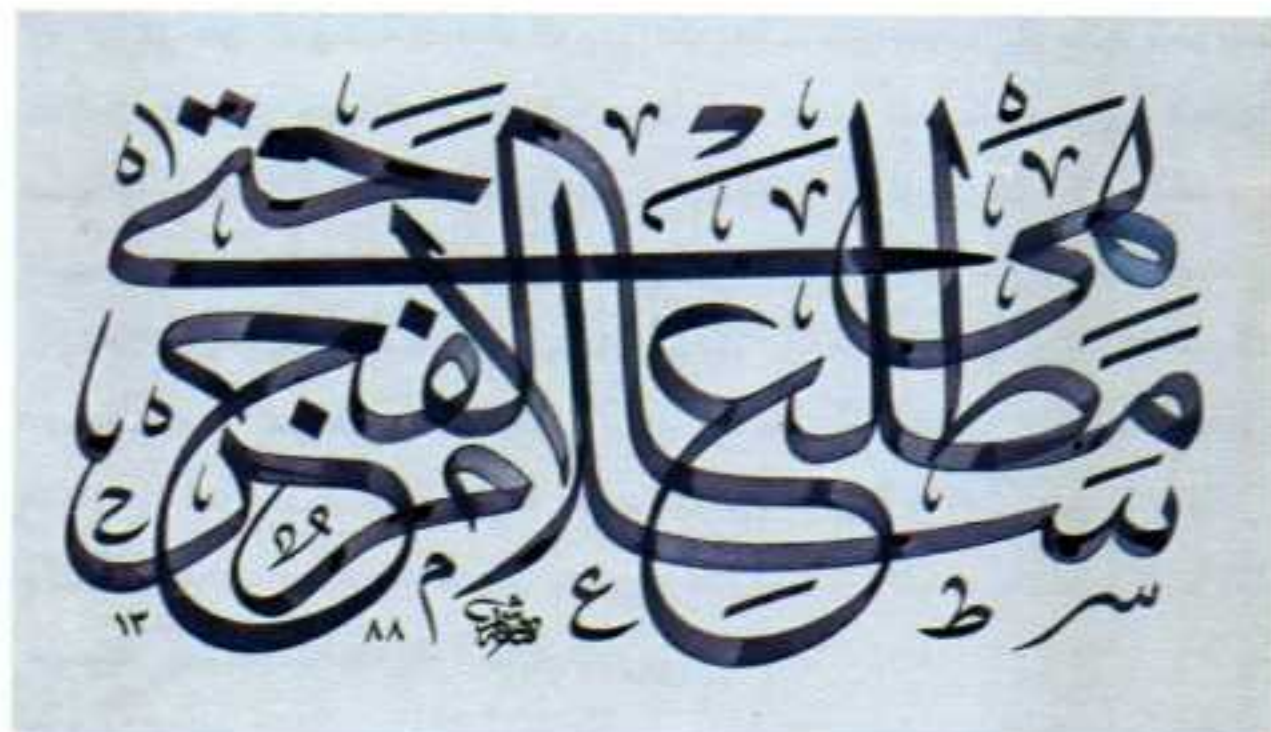 سَلَامٌ هِيَ حَتَّىٰ مَطْلَعِ الْفَجْرِ
١٣٨٨